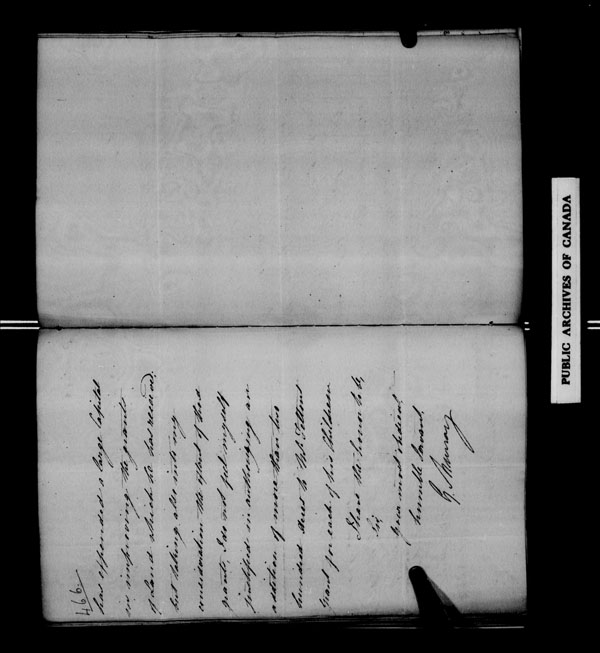 466
has expended a large Capital
in improving the grants
of land which he has received,
but taking also into my
consideration the extent of those
grants, I do not feel myself
justified in authorizing an
addition of more than two
hundred acres to Mr Talbot
Grant for each of his Children
I have the honor to be,
Sir,
Your most obedient
humble Servant,
G. Murray
PUBLIC ARCHIVES OF CANADA